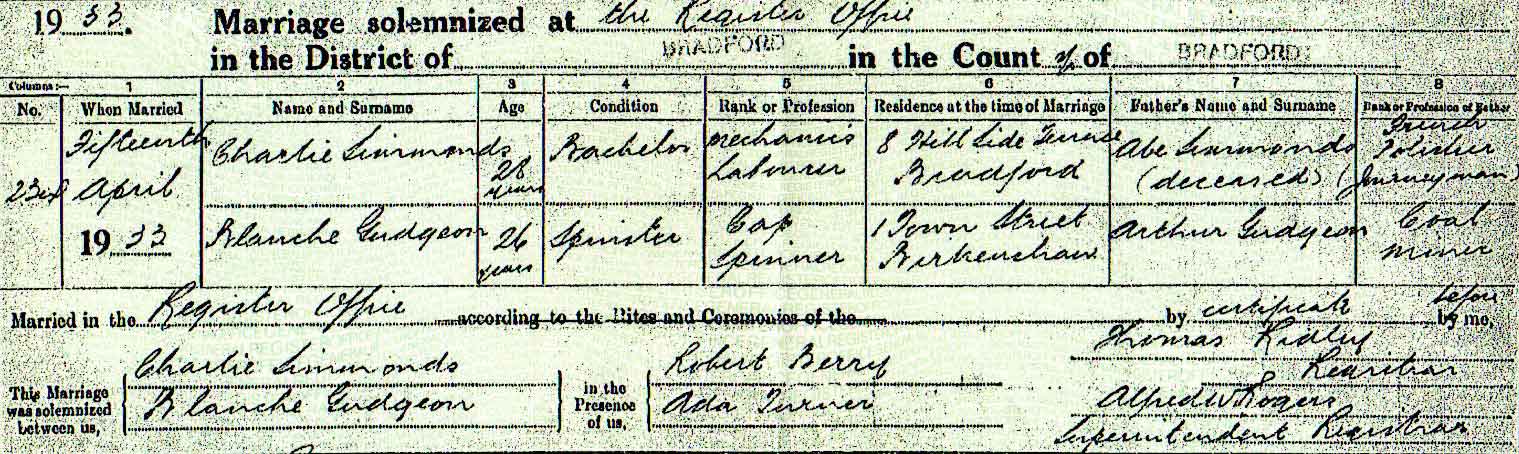 1933. Marriage solemnized at the Register Office
in the District of BRADFORD in the County of BRADFORD
Columns:— 1 2 3 4 5 6 7 8
No. When Married Name and Surname Age Condition Rank or Profession Residence at the time of Marriage Father's Name and Surname Rank or Profession of Father
Fifteenth April 1933
Charlie Simmonds 28 years Bachelor Mechanic's Labourer 8 Hill Side Terrace Bradford Abe Simmonds (deceased) French Polisher (Journeyman)
Blanche Gudgeon 26 years Spinster Cap Spinner 1 Town Street Birkenshaw Arthur Gudgeon Coal Miner
Married in the Register Office according to the Rites and Ceremonies of the by certificate before by me,
This Marriage was solemnized between us,
Charlie Simmonds
Blanche Gudgeon
in the Presence of us,
Robert Berry
Ada Turner
Thomas Ridley
Registrar
Alfred W Rogers
Superintendent Registrar